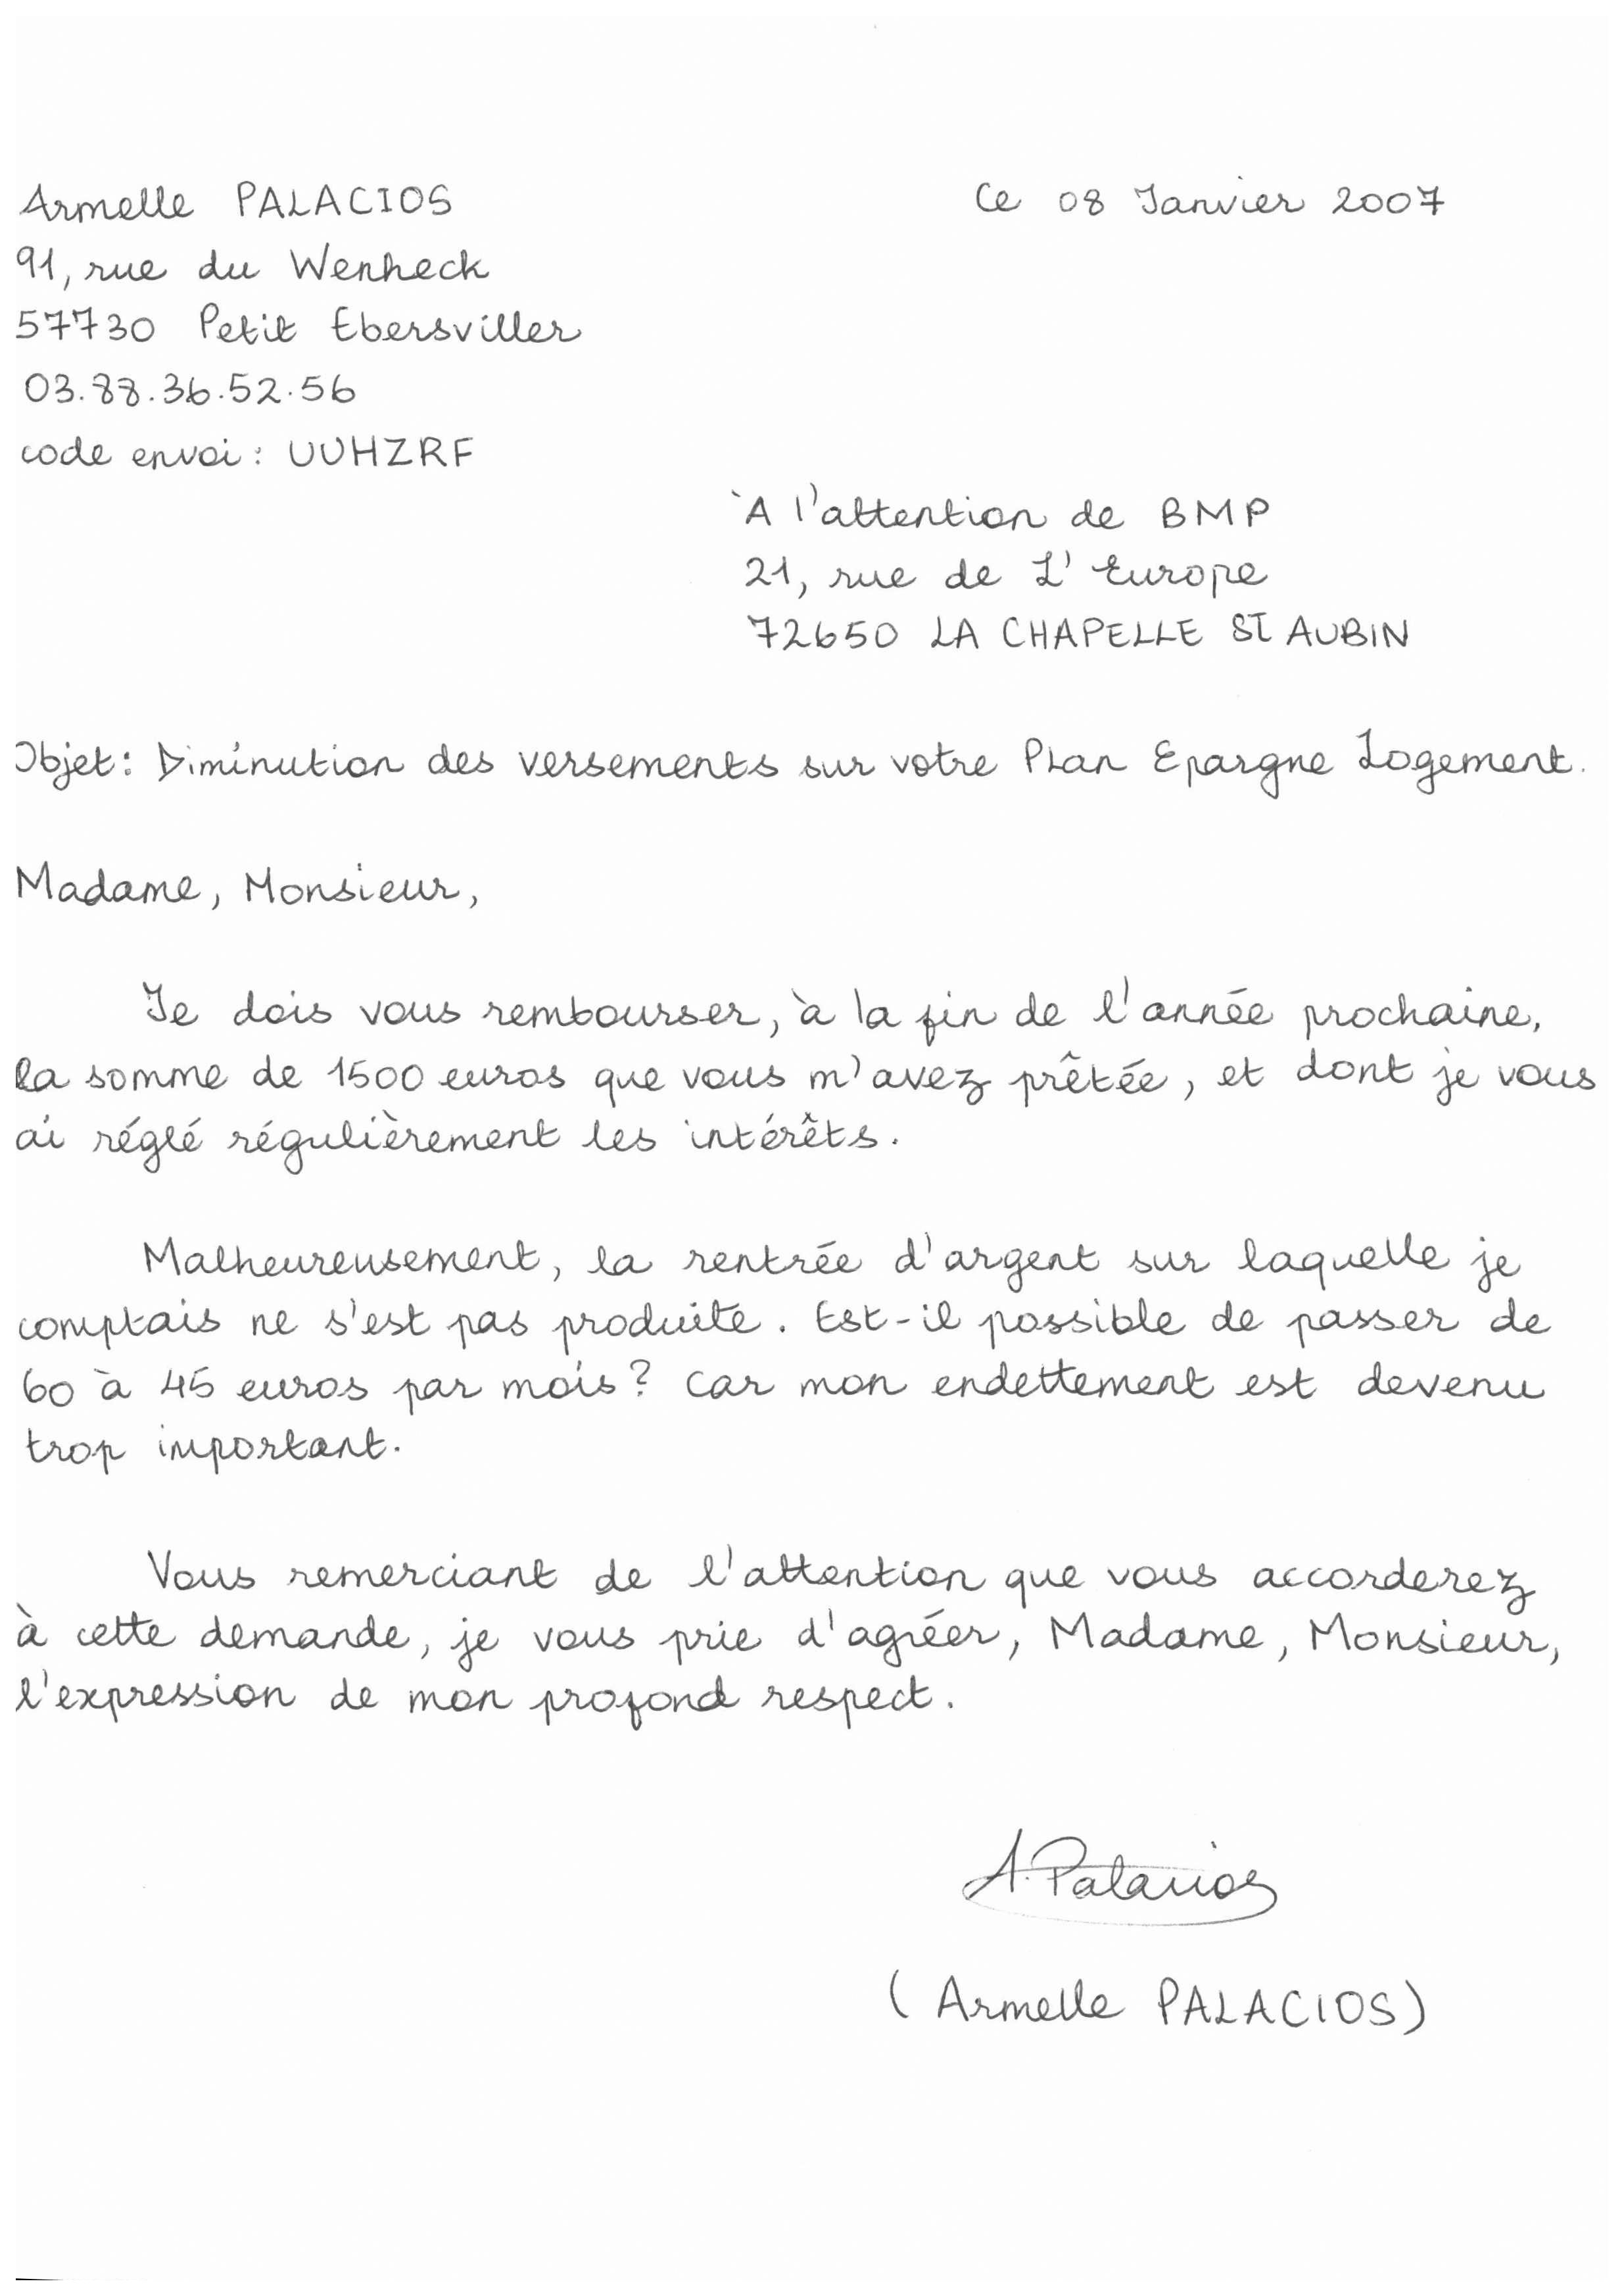 Armelle PALACIOS
Ce 08 Janvier 2007
91, rue du Wenheck
57730 Petit Ebersviller
03.88.36.52.56
code envoi : UUHZRF
À l'attention de BMP
21, rue de L'Europe
72650 LA CHAPELLE ST AUBIN
Objet : Diminution des versements sur votre Plan Epargne Logement.
Madame, Monsieur,
Je dois vous rembourser, à la fin de l'année prochaine,
la somme de 1500 euros que vous m'avez prêtée, et dont je vous
ai réglé régulièrement les intérêts.
Malheureusement, la rentrée d'argent sur laquelle je
comptais ne s'est pas produite. Est-il possible de passer de
60 à 45 euros par mois ? Car mon endettement est devenu
trop important.
Vous remerciant de l'attention que vous accorderez
à cette demande, je vous prie d'agréer, Madame, Monsieur,
l'expression de mon profond respect.
A. Palacios
(Armelle PALACIOS)